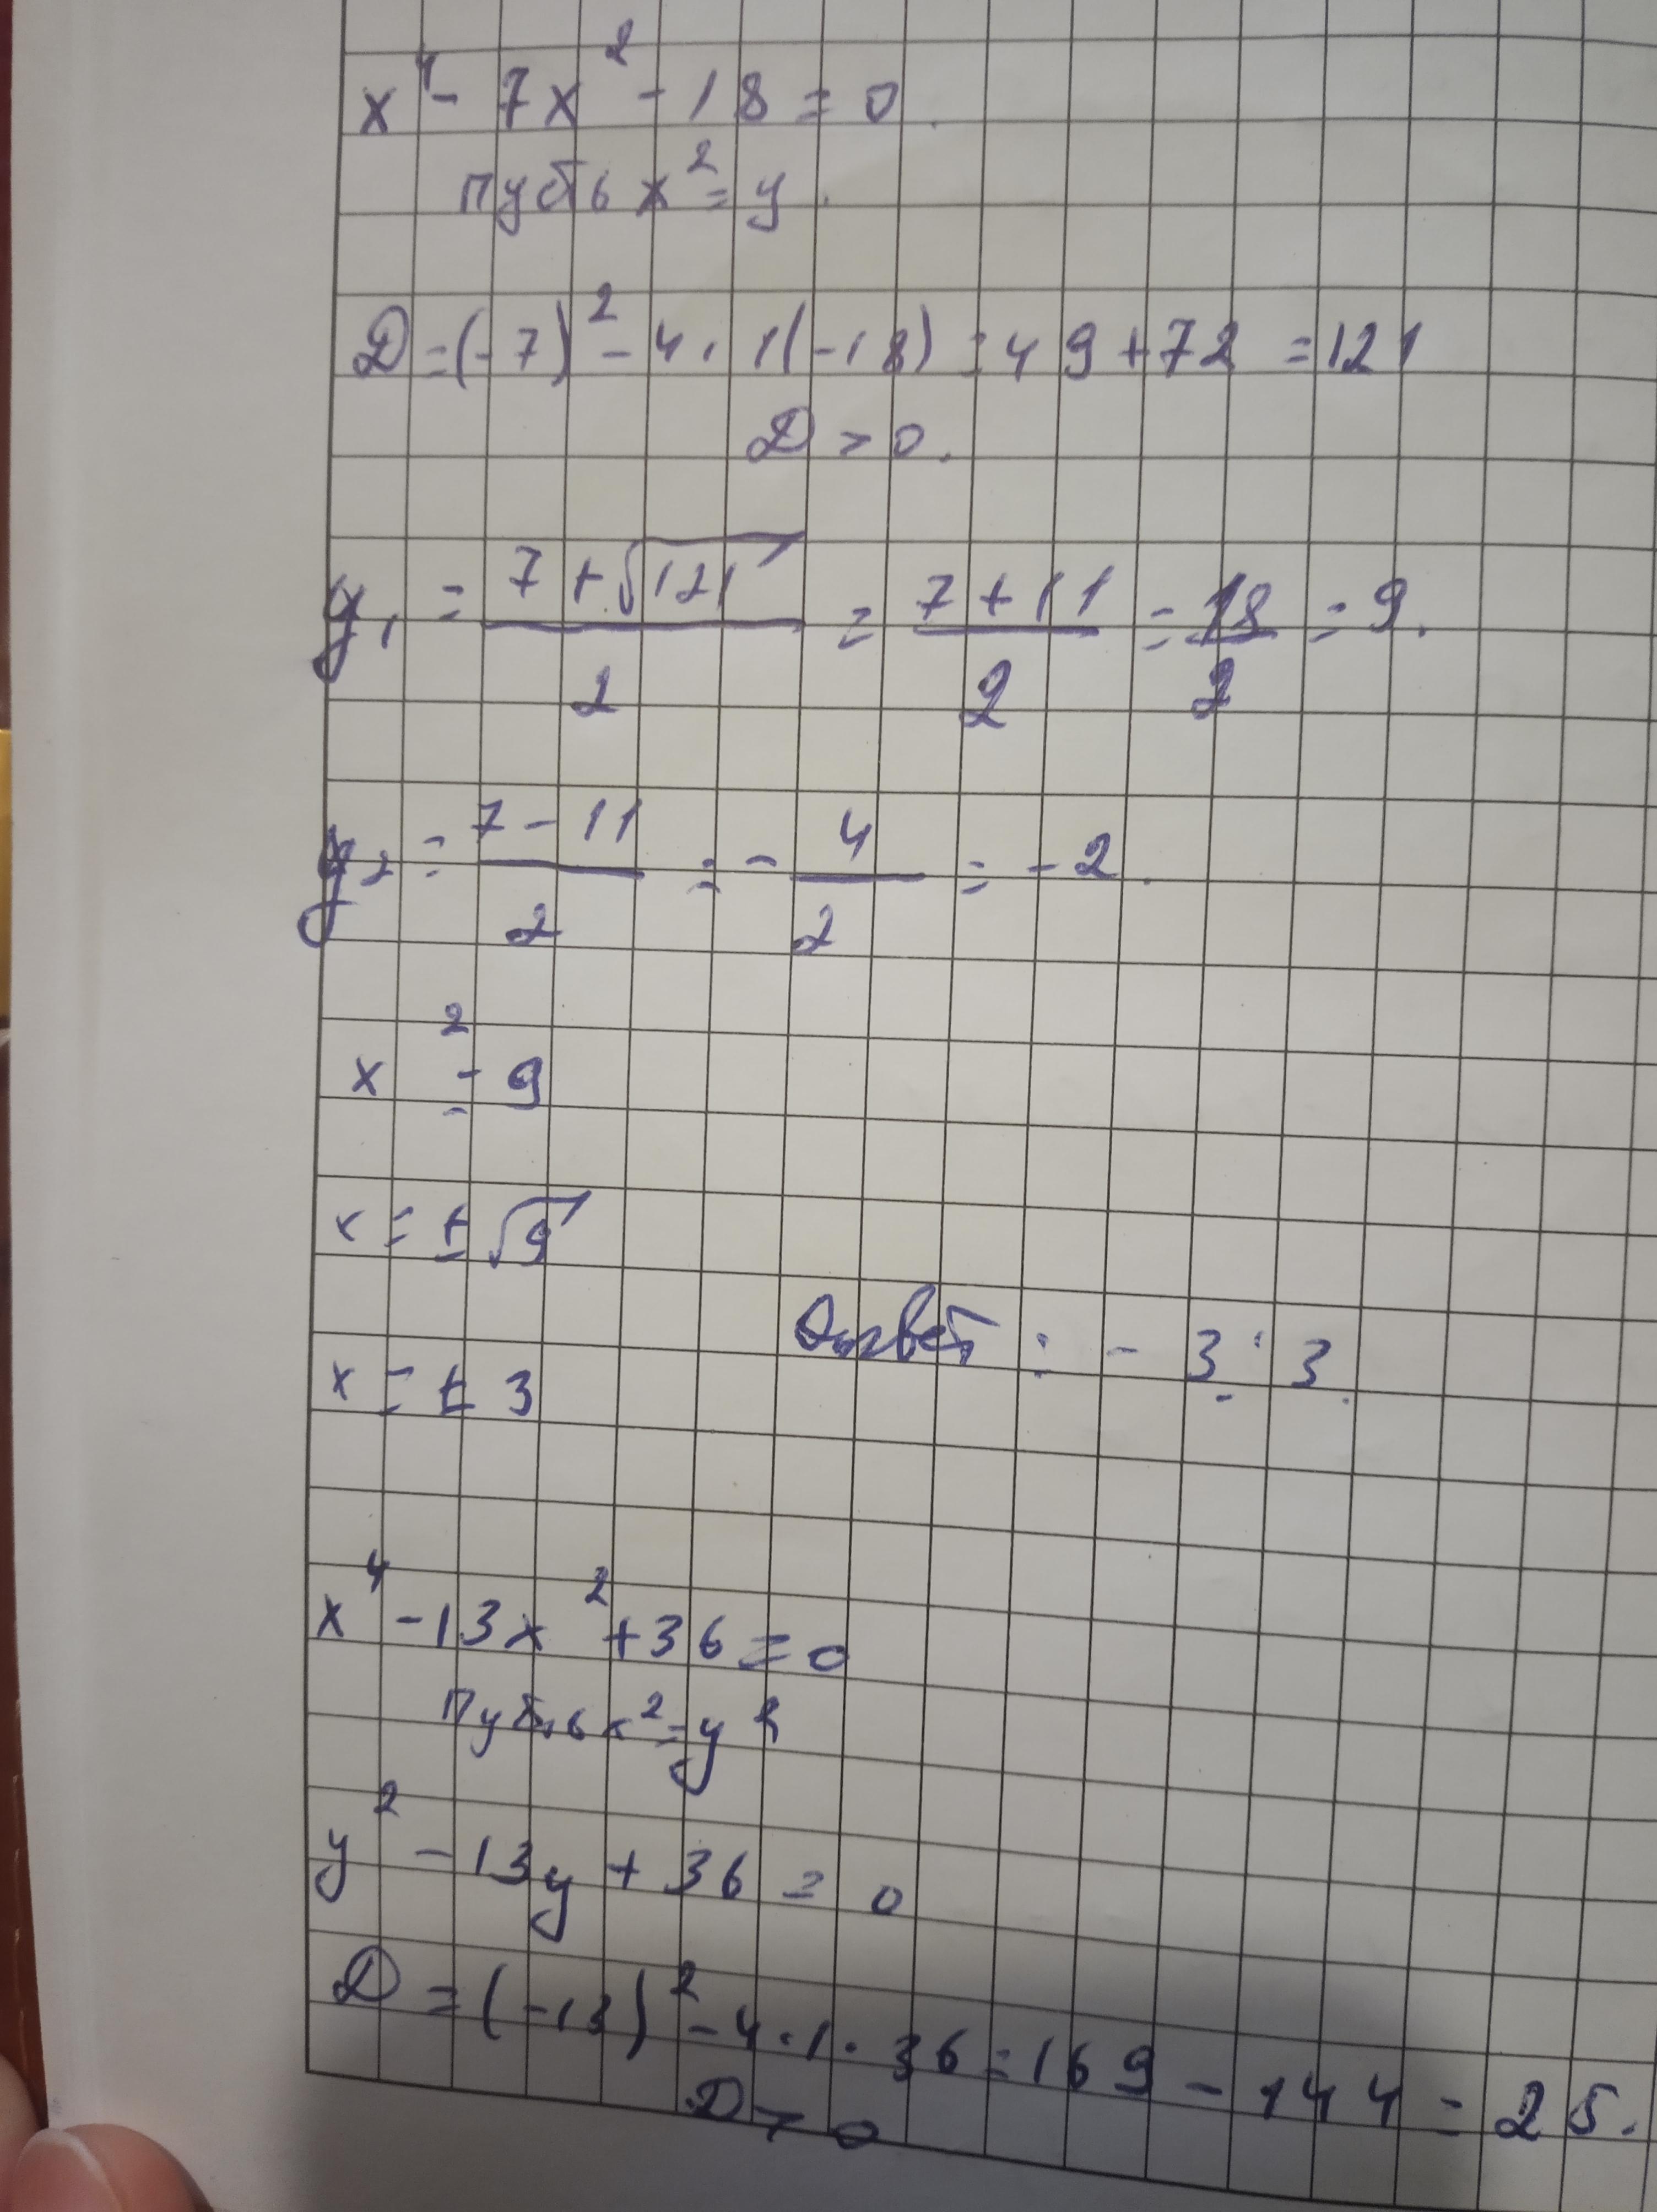 x⁴ - 7x² - 18 = 0.
пусть x² = y.
D = (-7)² - 4 · 1(-18) = 49 + 72 = 121
D > 0.
y₁ = (7 + √121)/2 = (7 + 11)/2 = 18/2 = 9.
y₂ = (7 - 11)/2 = - 4/2 = -2.
x² = 9
x = ± √9
x = ± 3
Ответ: - 3; 3.
x⁴ - 13x² + 36 = 0
Пусть x² = y
y² - 13y + 36 = 0
D = (-13)² - 4 · 1 · 36 = 169 - 144 = 25.
D > 0